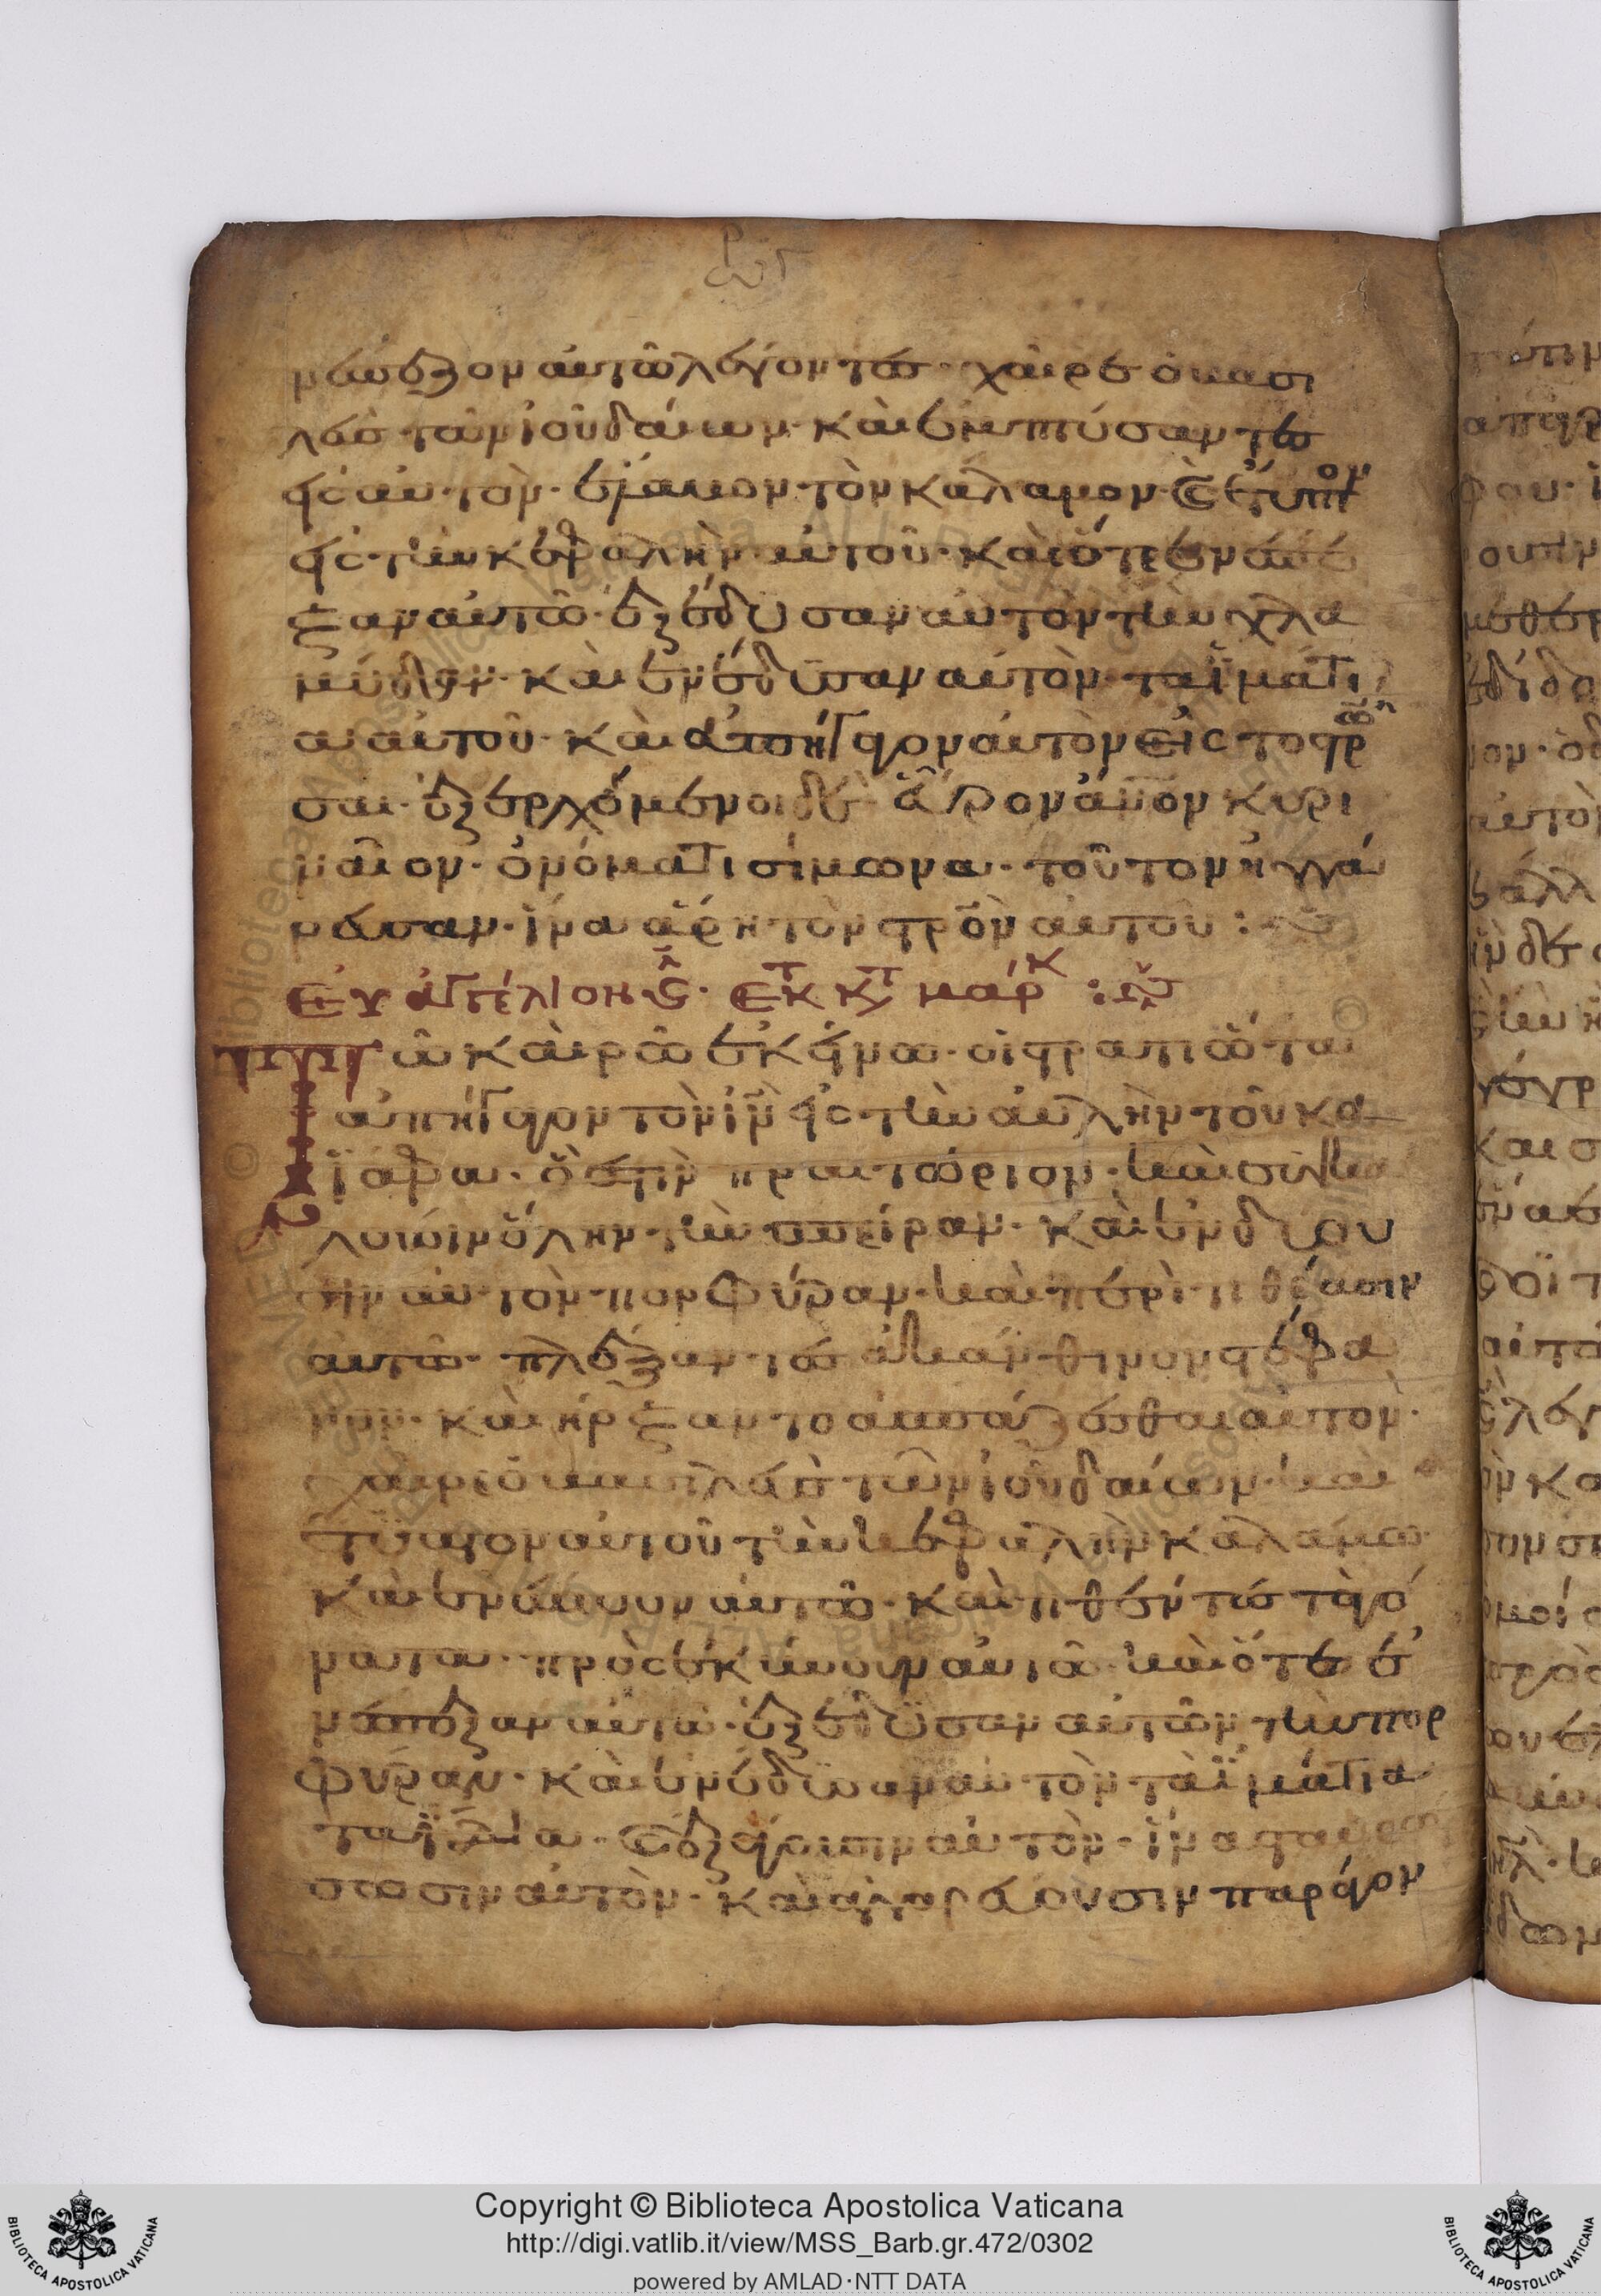 ἐνέπαιζον αὐτῶ λέγοντες· χαῖρε ὁ βασι
λεὺς τῶν ἰουδαίων· καὶ ἐμπτύσαντες
εἰς αὐτὸν· ἔλαβον τὸν κάλαμον· καὶ ἔτυπτον
εἰς τὴν κεφαλὴν αὐτοῦ· καὶ ὅτε ἐνέπαι
ξαν αὐτῶ· ἐξέδυσαν αὐτὸν τὴν χλα
μύδαν· καὶ ἐνέδυσαν αὐτὸν τὰ ἱμάτι
α αὐτοῦ· καὶ ἀπήγαγον αὐτὸν εἰς τὸ στρῶ
σαι· ἐξερχόμενοι δὲ εὗρον ἄνον κυρι
ναῖον· ὀνόματι σίμωνα· τοῦτον ἠγγά
ρευσαν· ἵνα ἄρη τὸν στρὸν αὐτοῦ :
Εὐαγγέλιον ς· ἐκ τ κτ μάρκ :
Τῶ καιρῶ ἐκείνω· οἱ στρατιῶται
ἀπήγαγον τὸν ἰν εἰς τὴν αὐλὴν τοῦ κα
ϊάφα· ὅ ἐστιν πραιτώριον· καὶ συγκα
λοῦσιν ὅλην τὴν σπεῖραν· καὶ ἐνδύου
σιν αὐτὸν πορφύραν· καὶ περιτιθέασιν
αὐτῶ· πλέξαντες ἀκάνθινον στέφα
νον· καὶ ἤρξαντο ἀσπάζεσθαι αὐτὸν·
χαῖρε ὁ βασιλεὺς τῶν ἰουδαίων· καὶ
ἔτυπτον αὐτοῦ τὴν κεφαλὴν καλάμω·
καὶ ἐνέπτυον αὐτῶ· καὶ τιθέντες τὰ γό
νατα· προσεκύνουν αὐτῶ· καὶ ὅτε ἐ
νέπαιξαν αὐτῶ· ἐξέδυσαν αὐτὸν τὴν πορ
φύραν· καὶ ἐνέδυσαν αὐτὸν τὰ ἱμάτια
τὰ ἴδια· καὶ ἐξάγουσιν αὐτὸν· ἵνα σταυρώ
σωσιν αὐτὸν· καὶ ἀγγαρεύουσιν παράγον
Copyright © Biblioteca Apostolica Vaticana
http://digi.vatlib.it/view/MSS_Barb.gr.472/0302
powered by AMLAD·NTT DATA
BIBLIOTECA APOSTOLICA VATICANA
BIBLIOTECA APOSTOLICA VATICANA